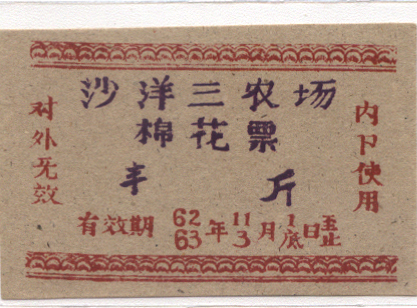 沙洋三农场
棉花票
半斤
对外无效
内卩使用
有效期 62年11月1日至
63年3月底日止